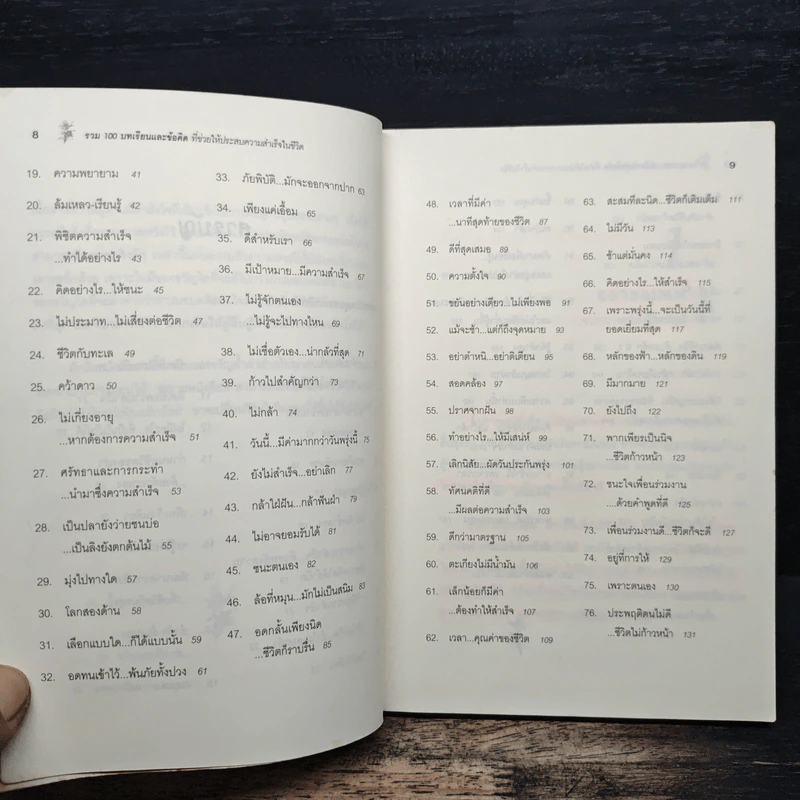 8 รวม 100 บทเรียนและข้อคิด ที่ช่วยให้ประสบความสำเร็จในชีวิต
19. ความพยายาม 41
20. ล้มเหลว-เรียนรู้ 42
21. พิชิตความสำเร็จ
...ทำได้อย่างไร 43
22. คิดอย่างไร...ให้ชนะ 45
23. ไม่ประมาท...ไม่เสี่ยงต่อชีวิต 47
24. ชีวิตกับทะเล 49
25. คว้าดาว 50
26. ไม่เกี่ยงอายุ
...หากต้องการความสำเร็จ 51
27. ศรัทธาและการกระทำ
...นำมาซึ่งความสำเร็จ 53
28. เป็นปลายังว่ายชนบ่อ
...เป็นลิงยังตกต้นไม้ 55
29. มุ่งไปทางใด 57
30. โลกสองด้าน 58
31. เลือกแบบใด...ก็ได้แบบนั้น 59
32. อดทนเข้าไว้...พ้นภัยทั้งปวง 61
33. ภัยพิบัติ...มักจะออกจากปาก 63
34. เพียงแค่เอื้อม 65
35. ดีสำหรับเรา 66
36. มีเป้าหมาย...มีความสำเร็จ 67
37. ไม่รู้จักตนเอง
...ไม่รู้จะไปทางไหน 69
38. ไม่เชื่อตัวเอง...น่ากลัวที่สุด 71
39. ก้าวไปสำคัญกว่า 73
40. ไม่กล้า 74
41. วันนี้...มีค่ามากกว่าวันพรุ่งนี้ 75
42. ยังไม่สำเร็จ...อย่าเลิก 77
43. กล้าใฝ่ฝัน...กล้าฟันฝ่า 79
44. ไม่อาจยอมรับได้ 81
45. ชนะตนเอง 82
46. ล้อที่หมุน...มักไม่เป็นสนิม 83
47. อดกลั้นเพียงนิด
...ชีวิตก็ราบรื่น 85
9
48. เวลาที่มีค่า
...นาทีสุดท้ายของชีวิต 87
49. ดีที่สุดเสมอ 89
50. ความตั้งใจ 90
51. ขยันอย่างเดียว...ไม่เพียงพอ 91
52. แม้จะช้า...แต่ก็ถึงจุดหมาย 93
53. อย่าตำหนิ...อย่าติเตียน 95
54. สอดคล้อง 97
55. ปราศจากฝัน 98
56. ทำอย่างไร...ให้มีเสน่ห์ 99
57. เลิกนิสัย...ผัดวันประกันพรุ่ง 101
58. ทัศนคติที่ดี
...มีผลต่อความสำเร็จ 103
59. ดีกว่ามาตรฐาน 105
60. ตะเกียงไม่มีน้ำมัน 106
61. เล็กน้อยก็มีค่า
...ต้องทำให้สำเร็จ 107
62. เวลา...คุณค่าของชีวิต 109
63. สะสมทีละนิด...ชีวิตก็เติมเต็ม 111
64. ไม่มีวัน 113
65. ช้าแต่มั่นคง 114
66. คิดอย่างไร...ให้สำเร็จ 115
67. เพราะพรุ่งนี้...จะเป็นวันนี้ที่
ยอดเยี่ยมที่สุด 117
68. หลักของฟ้า...หลักของดิน 119
69. มีมากมาย 121
70. ยังไปถึง 122
71. พากเพียรเป็นนิจ
...ชีวิตก้าวหน้า 123
72. ชนะใจเพื่อนร่วมงาน
...ด้วยคำพูดที่ดี 125
73. เพื่อนร่วมงานดี...ชีวิตก็จะดี 127
74. อยู่ที่การให้ 129
75. เพราะตนเอง 130
76. ประพฤติตนไม่ดี
...ชีวิตไม่ก้าวหน้า 131